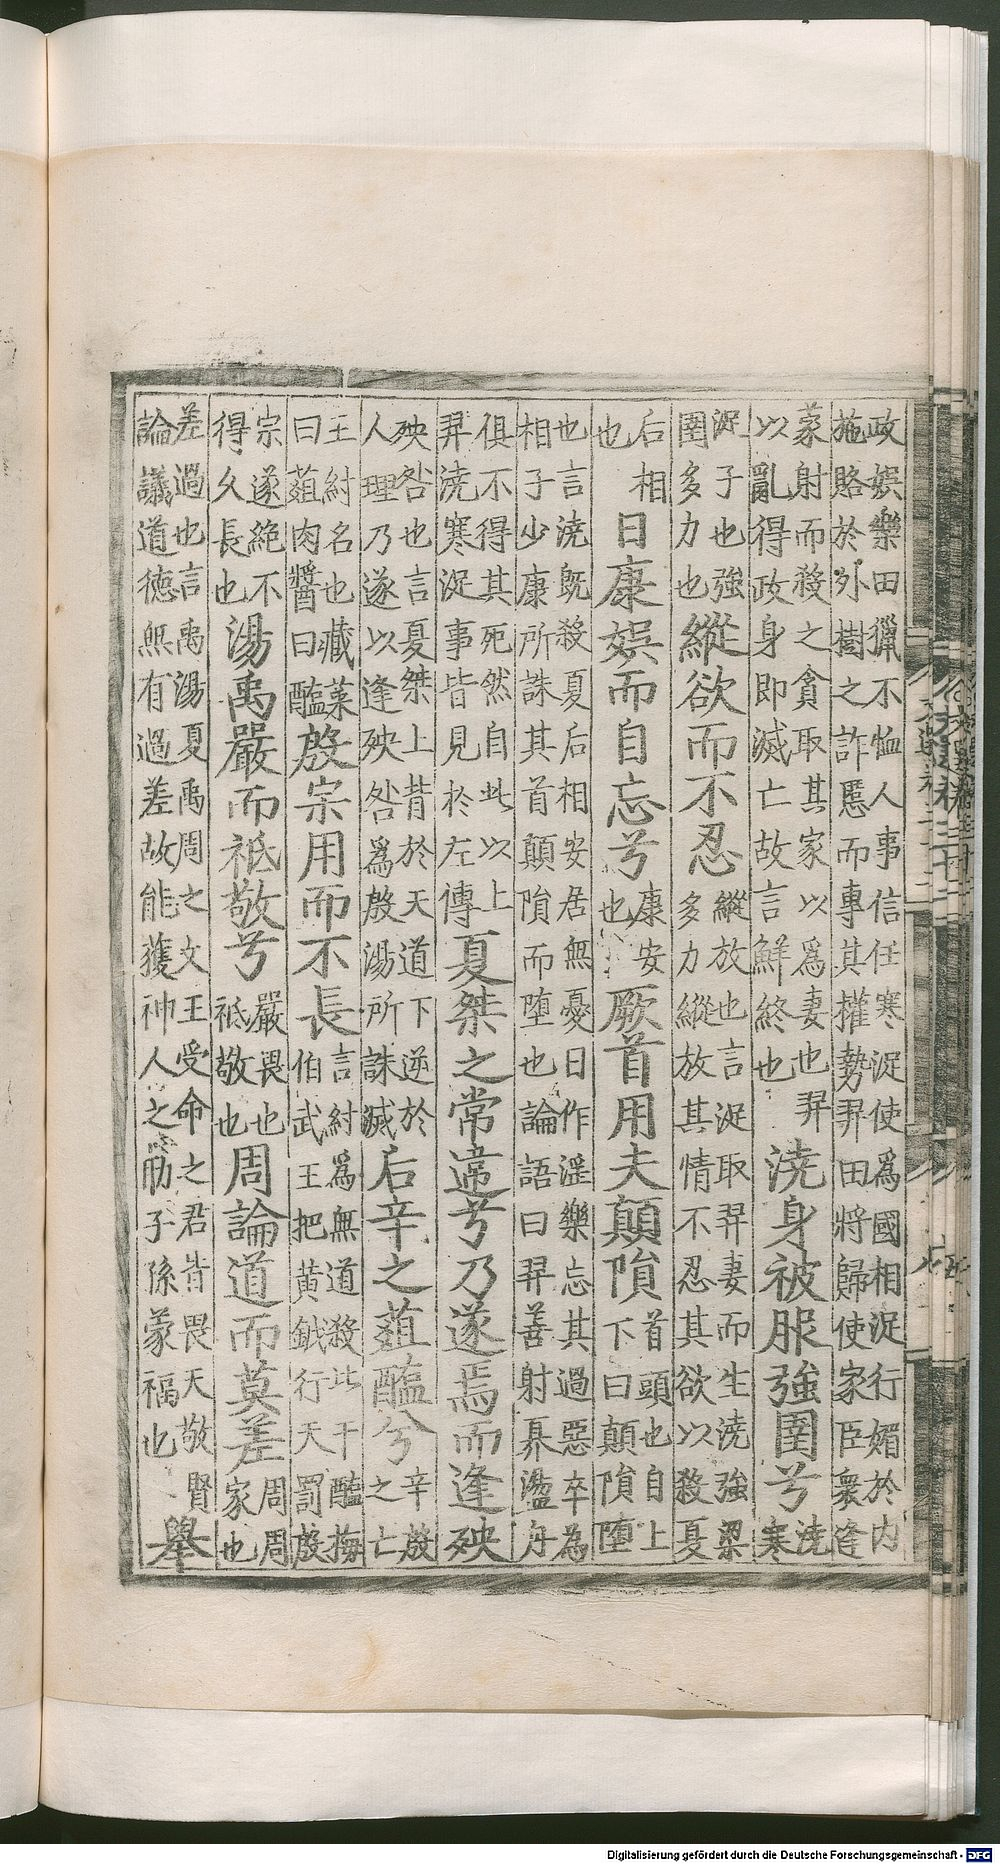 政娯樂田獵不恤人事信任寒浞使為國相浞行媚於内
施賂於外樹之詐慝而專其權勢羿田將歸使家臣衆逢
蒙射而殺之貪取其家以爲妻也羿以亂得政身即滅亡故言鮮終也澆身被服強圉兮澆寒
浞子也強圉多力也縱欲而不忍縱放也言浞取羿妻而生澆強梁多力縱放其情不忍其欲以殺夏
后相也日康娯而自忘兮康安也厥首用夫顛隕首頭也自上下曰顛隕墮
也言澆既殺夏后相安居無憂日作滛樂忘其過惡卒為
相子少康所誅其首顛隕而墮也論語曰羿善射奡盪舟
俱不得其死然自此以上羿澆寒浞事皆見於左傳夏桀之常違兮乃遂焉而逢殃
殃咎也言夏桀上背於天道下逆於人理乃遂以逢殃咎爲殷湯所誅滅后辛之菹醢兮辛殷之亡
王紂名也藏菜曰菹肉醬曰醢殷宗用而不長言紂爲無道殺比干醢梅伯武王把黄鉞行天罰殷
宗遂絶不得久長也湯禹嚴而祗敬兮嚴畏也祗敬也周論道而莫差周周家也
差過也言禹湯夏禹周之文王受命之君皆畏天敬賢
論議道德無有過差故能獲神人之助子孫蒙福也舉
Digitalisierung gefördert durch die Deutsche Forschungsgemeinschaft - DFG